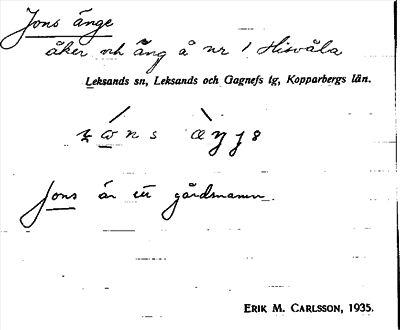 Jons änge
åker och äng å nr 1 Hisvåla
Leksands sn, Leksands och Gagnefs tg, Kopparbergs län.
Jons är ett gårdsnamn.
ERIK M. CARLSSON, 1935.